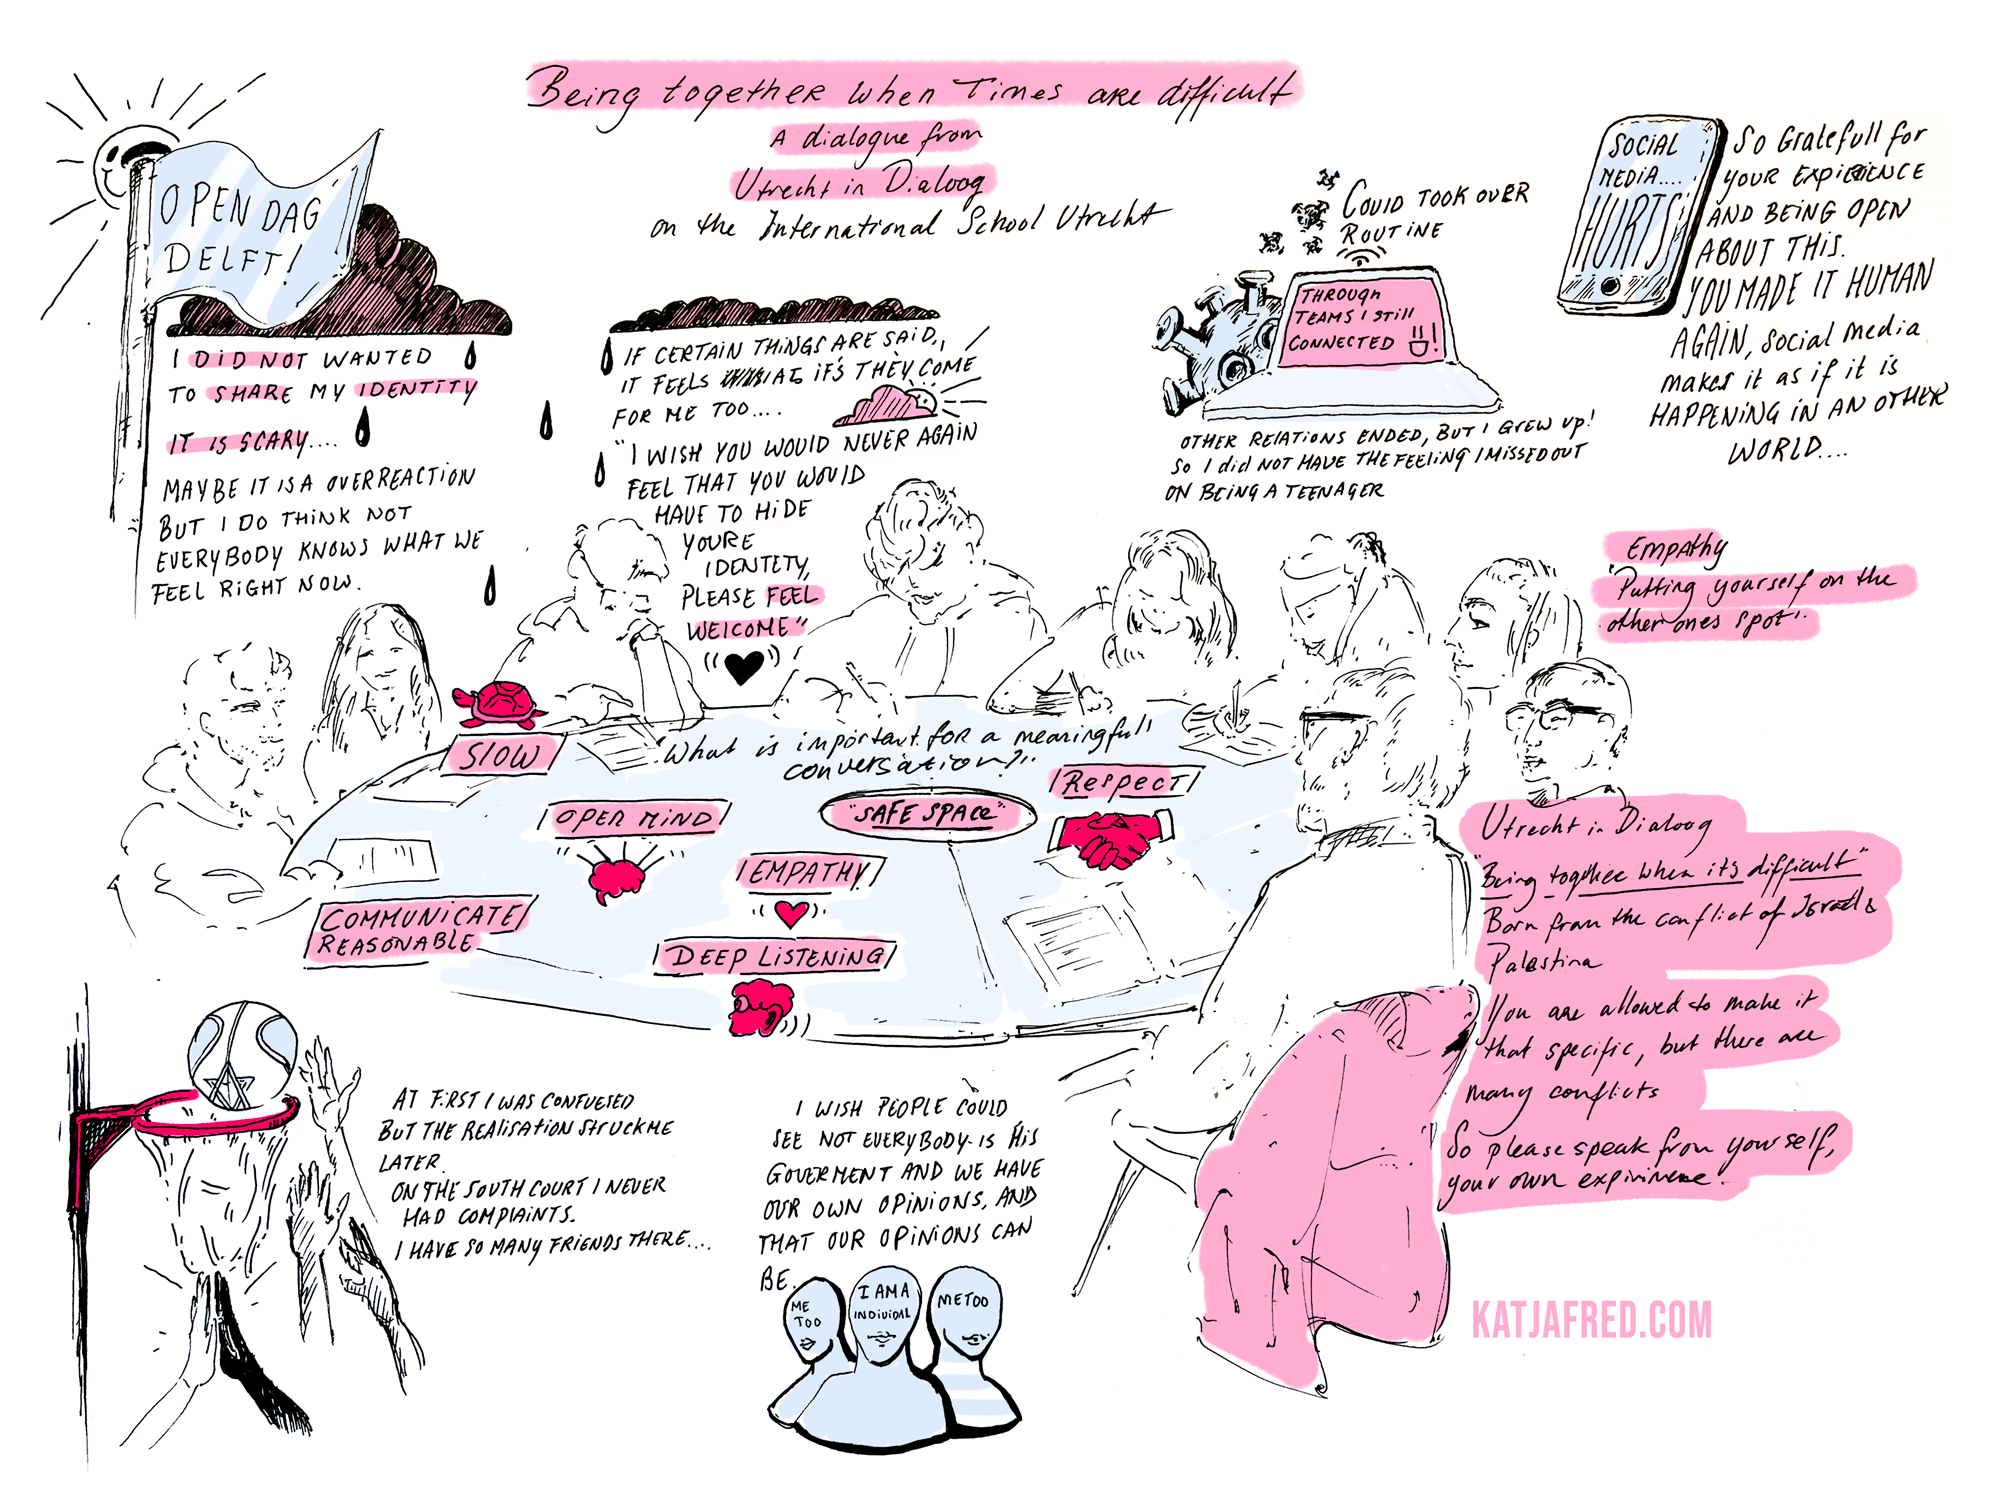 Being together when Times are difficult
A dialogue from
Utrecht in Dialoog
on the International School Utrecht
OPEN DAG
DELFT!
I DID NOT WANTED
TO SHARE MY IDENTITY
IT IS SCARY....
MAYBE IT IS A OVERREACTION
BUT I DO THINK NOT
EVERYBODY KNOWS WHAT WE
FEEL RIGHT NOW.
IF CERTAIN THINGS ARE SAID,
IT FEELS AS IF'S THEY COME
FOR ME TOO....
"I WISH YOU WOULD NEVER AGAIN
FEEL THAT YOU WOULD
HAVE TO HIDE
YOURE
IDENTETY,
PLEASE FEEL
WELCOME"
COVID TOOK OVER
ROUTINE
THROUGH
TEAMS I STILL
CONNECTED !
OTHER RELATIONS ENDED, BUT I GREW UP!
SO I did NOT HAVE THE FEELING I MISSED OUT
ON BEING A TEENAGER
SOCIAL
MEDIA....
HURTS
So Gratefull for
YOUR EXPIERIENCE
AND BEING OPEN
ABOUT THIS.
YOU MADE IT HUMAN
AGAIN, social media
makes it as if it is
HAPPENING IN AN OTHER
WORLD....
Empathy
"Putting yourself on the
other ones spot".
"What is important for a meaningfull
conversation?"
SLOW
OPEN MIND
"SAFE SPACE"
RESPECT
EMPATHY
COMMUNICATE
REASONABLE
DEEP LISTENING
Utrecht in Dialoog
"Being together when it's difficult"
Born from the conflict of Israel &
Palestina
You are allowed to make it
that specific, but there are
many conflicts
So please speak from yourself,
your own
AT FIRST I WAS CONFUESED
BUT THE REALISATION STRUCK ME
LATER.
ON THE SOUTH COURT I NEVER
HAD COMPLAINTS.
I HAVE SO MANY FRIENDS THERE....
I WISH PEOPLE COULD
SEE NOT EVERYBODY IS HIS
GOVERMENT AND WE HAVE
OUR OWN OPINIONS, AND
THAT OUR OPINIONS CAN
BE.
ME
TOO
I AM A
INDIVIDAL
METOO
KATJAFRED.COM